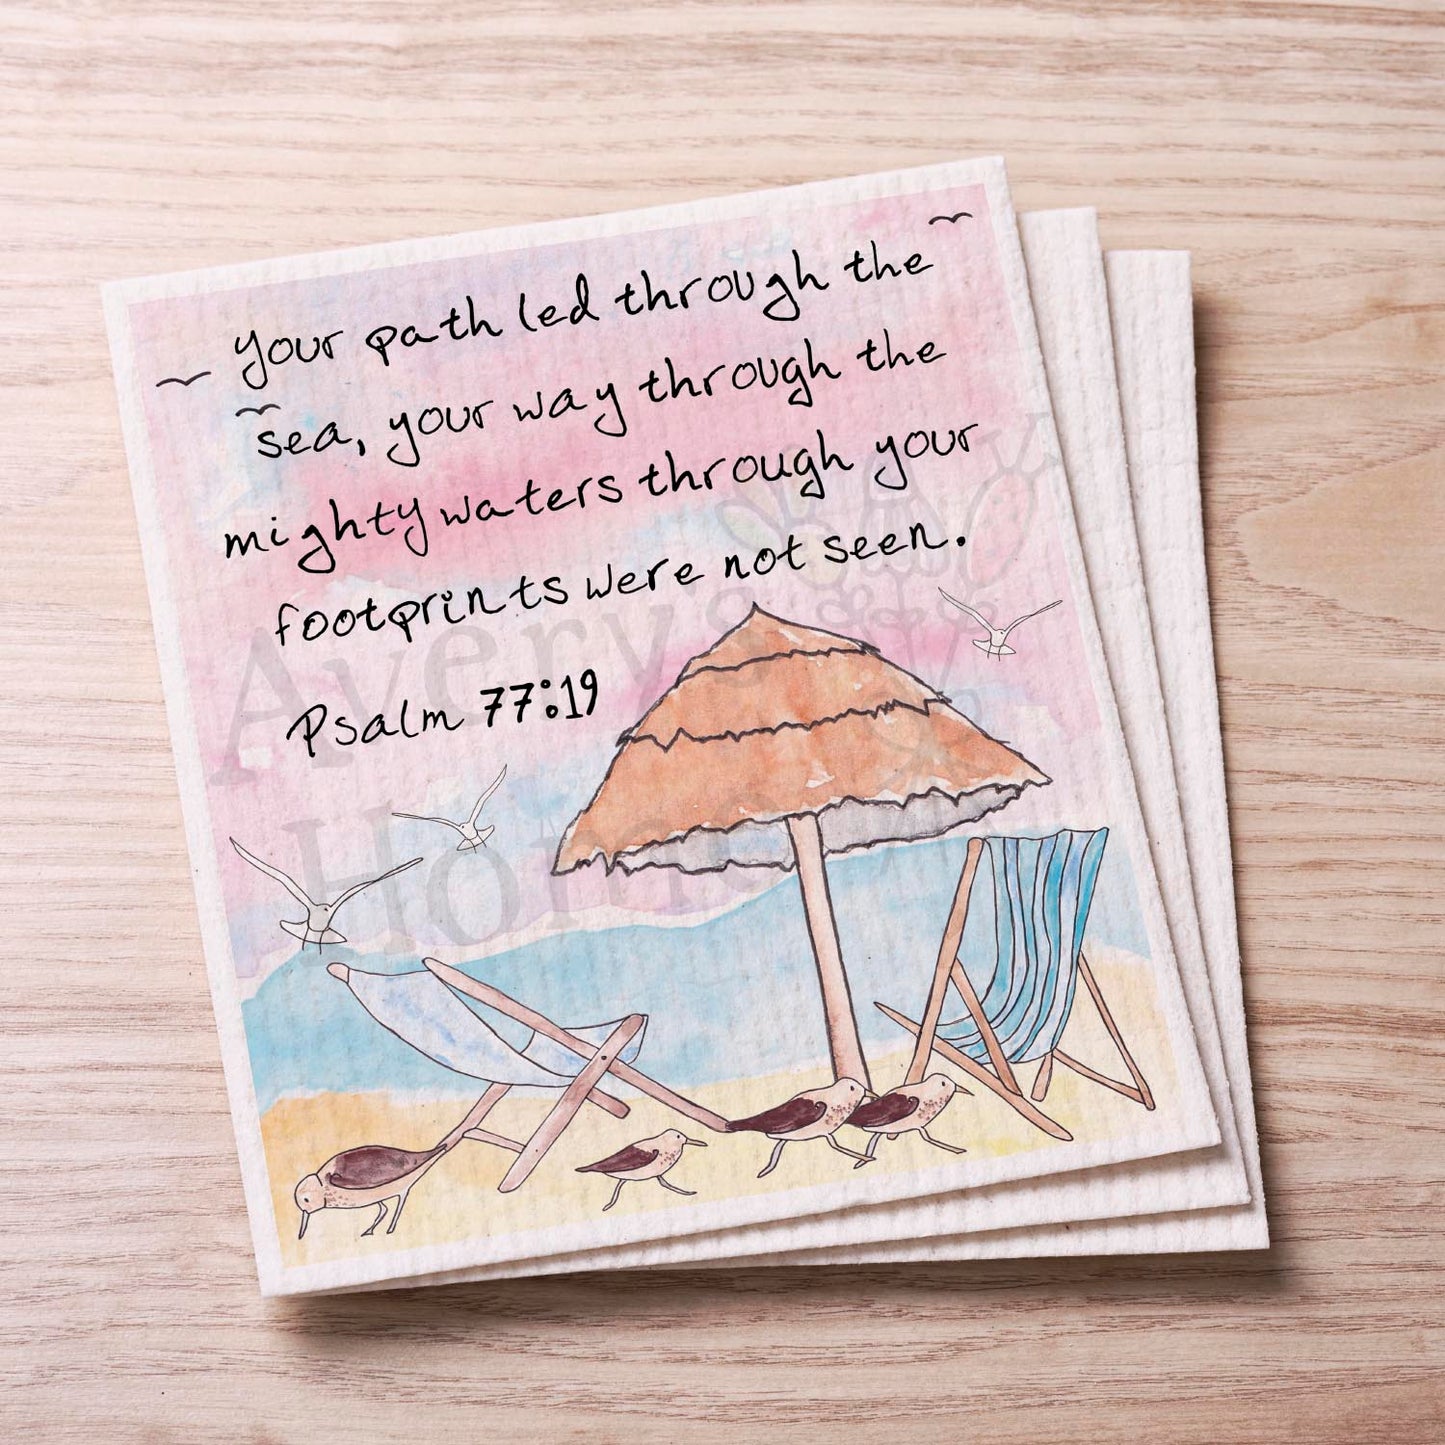 your path led through the
sea, your way through the
mighty waters through your
footprints were not seen.
Psalm 77:19
Avery's
Home